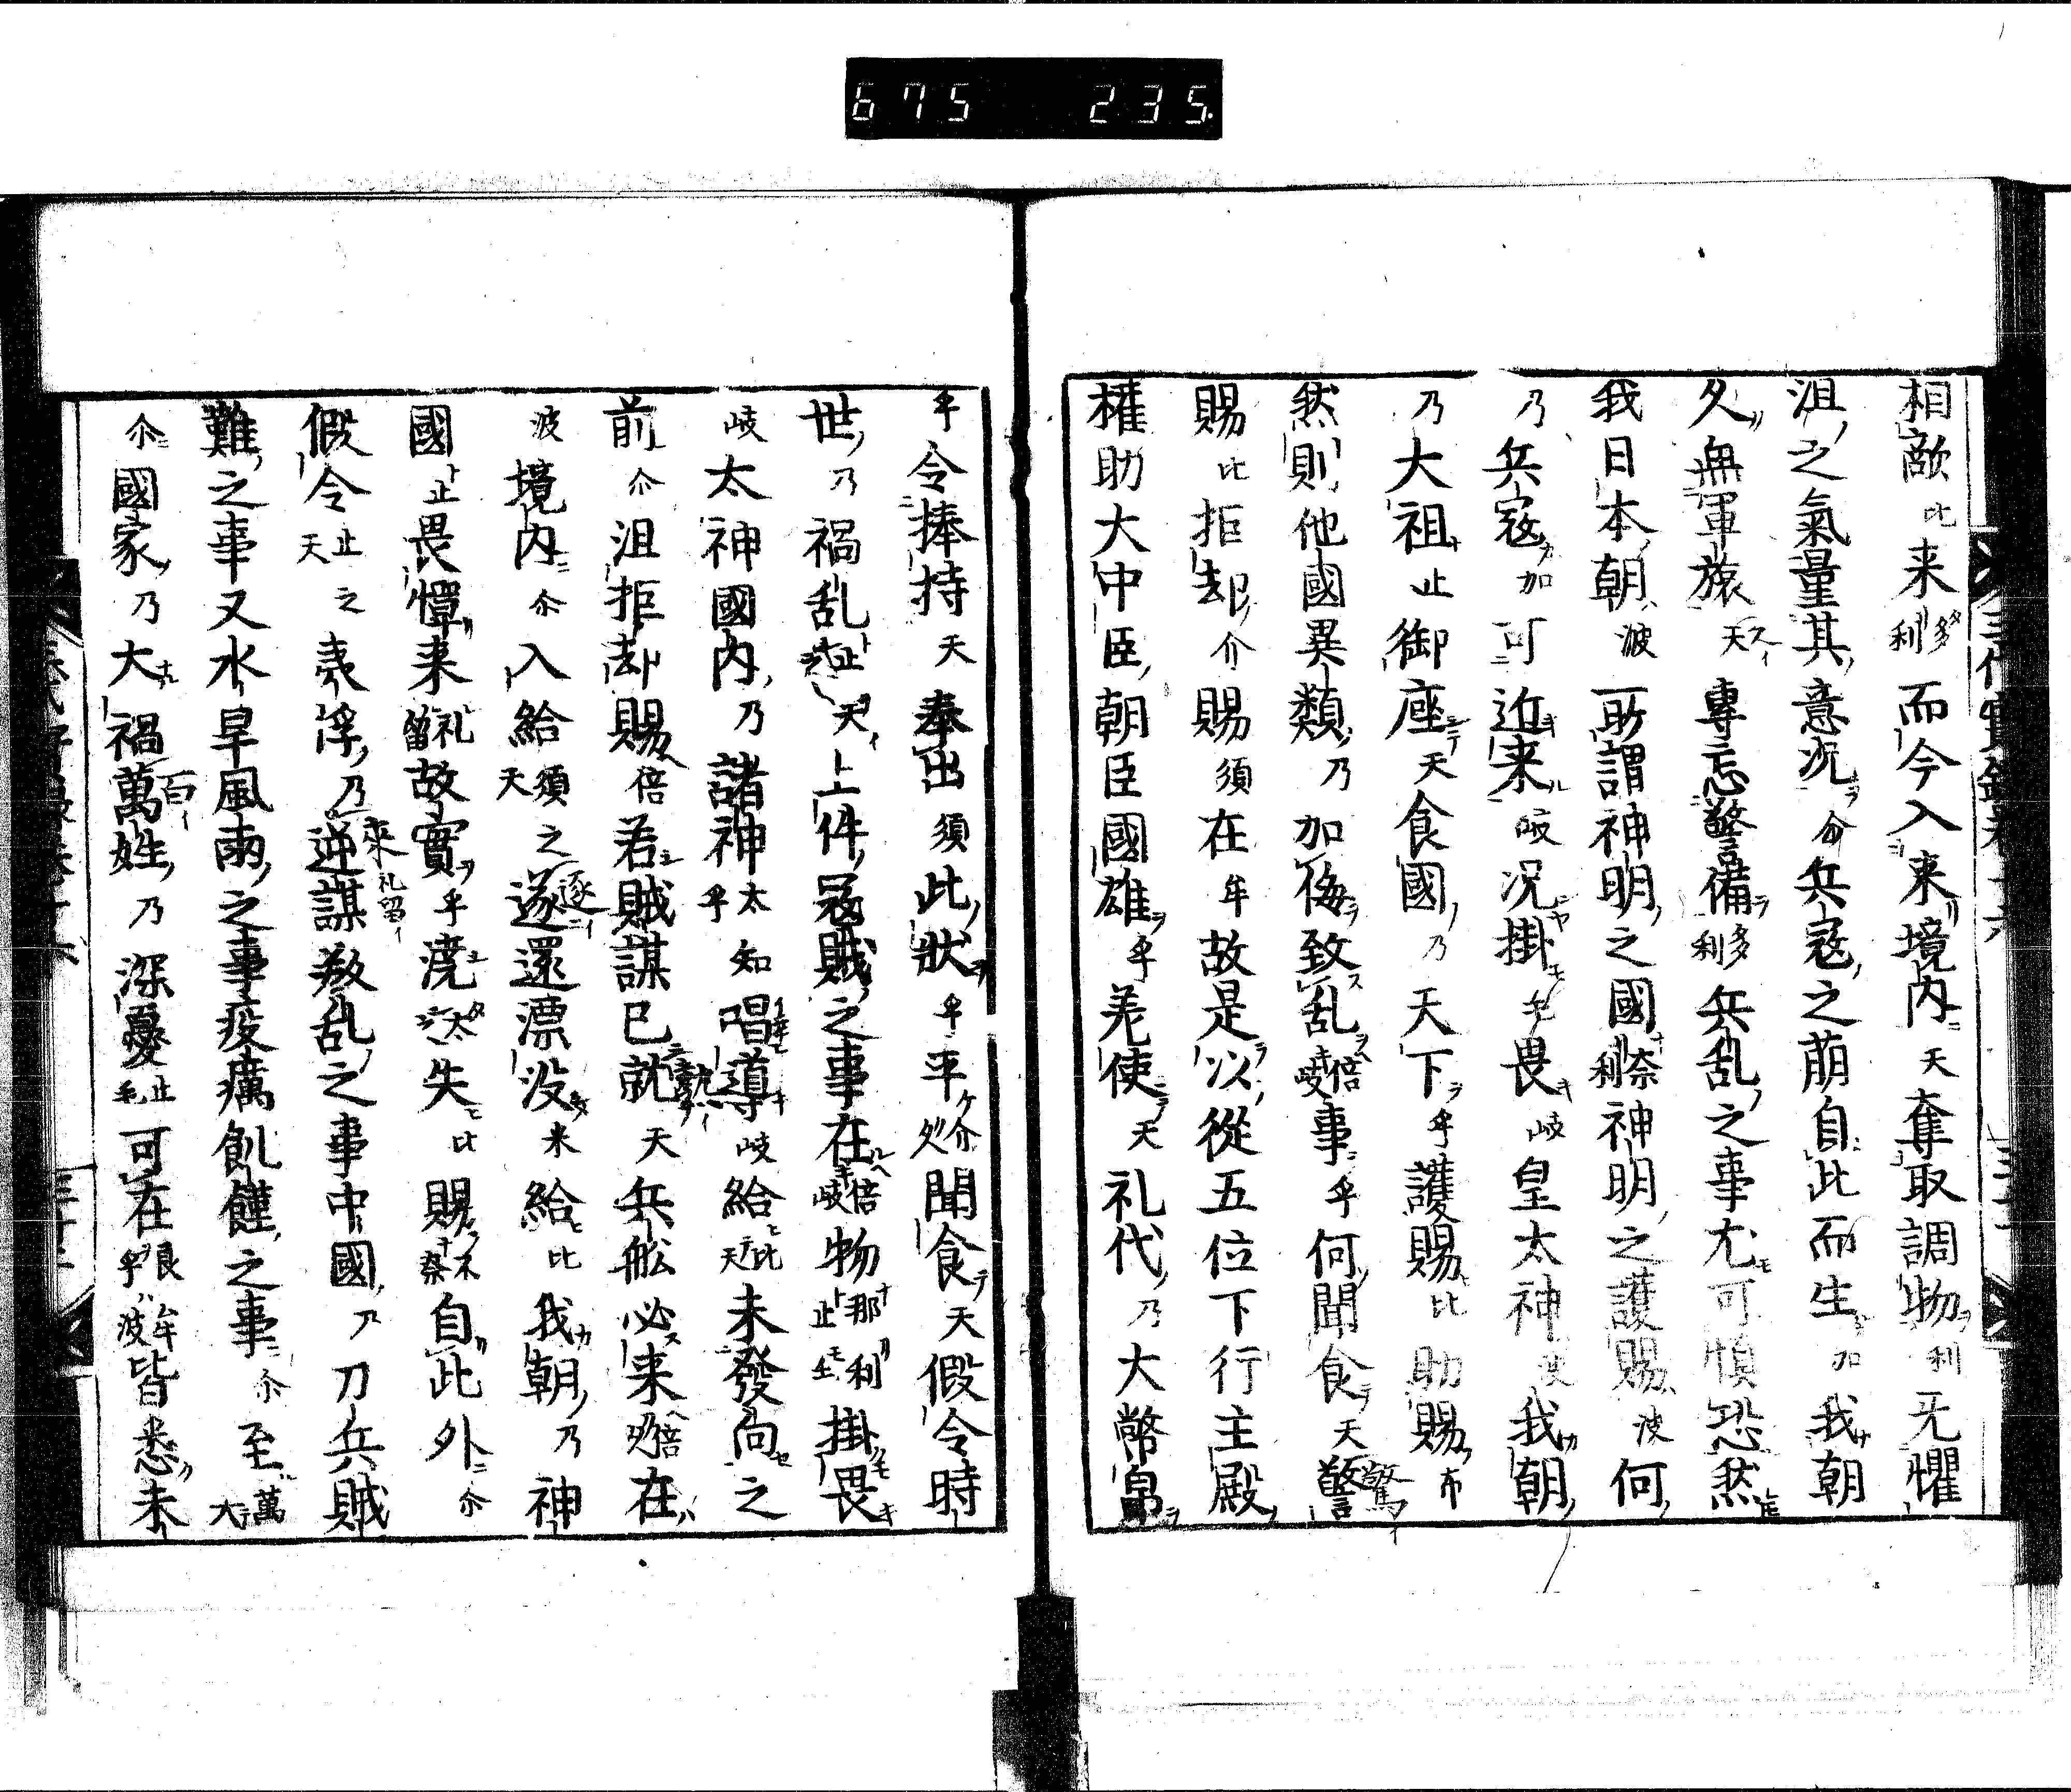 675 235.
相敵比来多利而今入来境内天奪取調物利无懼
沮之氣量其意況尒兵寇之萌自此而生加我朝
久無軍旅天專忘警備多利兵乱之事尤可慎恐然
我日本朝波所謂神明之國奈利神明之護賜波何
乃兵寇加可近来岐況掛毛畏岐皇太神波我朝
乃大祖止御座天食國乃天下乎護賜比助賜布
然則他國異類乃加侮致乱倍岐事乎何聞食天警
賜比拒却介賜須在牟故是以從五位下行主殿
權助大中臣朝臣國雄乎差使天礼代乃大幣帛
乎令捧持天奉出須此狀乎平介久聞食天假令時
世乃禍乱止之天上件寇賊之事在倍岐物那利止毛掛畏
岐太神國内乃諸神太知乎唱導岐給比天未發向之
前尒沮拒却賜倍若賊謀已就天兵舩必来倍久在
波境内尒入給須天之逐還漂没米給比我朝乃神
國止畏憚来礼留故實乎澆太之失比賜不奈自此外尒
假令止之天夷浮乃逆謀叛乱之事中國乃刀兵賊
難之事又水旱風雨之事疫癘飢饉之事尒至萬大
尒國家乃大禍萬姓乃深憂止毛可在良牟乎波皆悉未